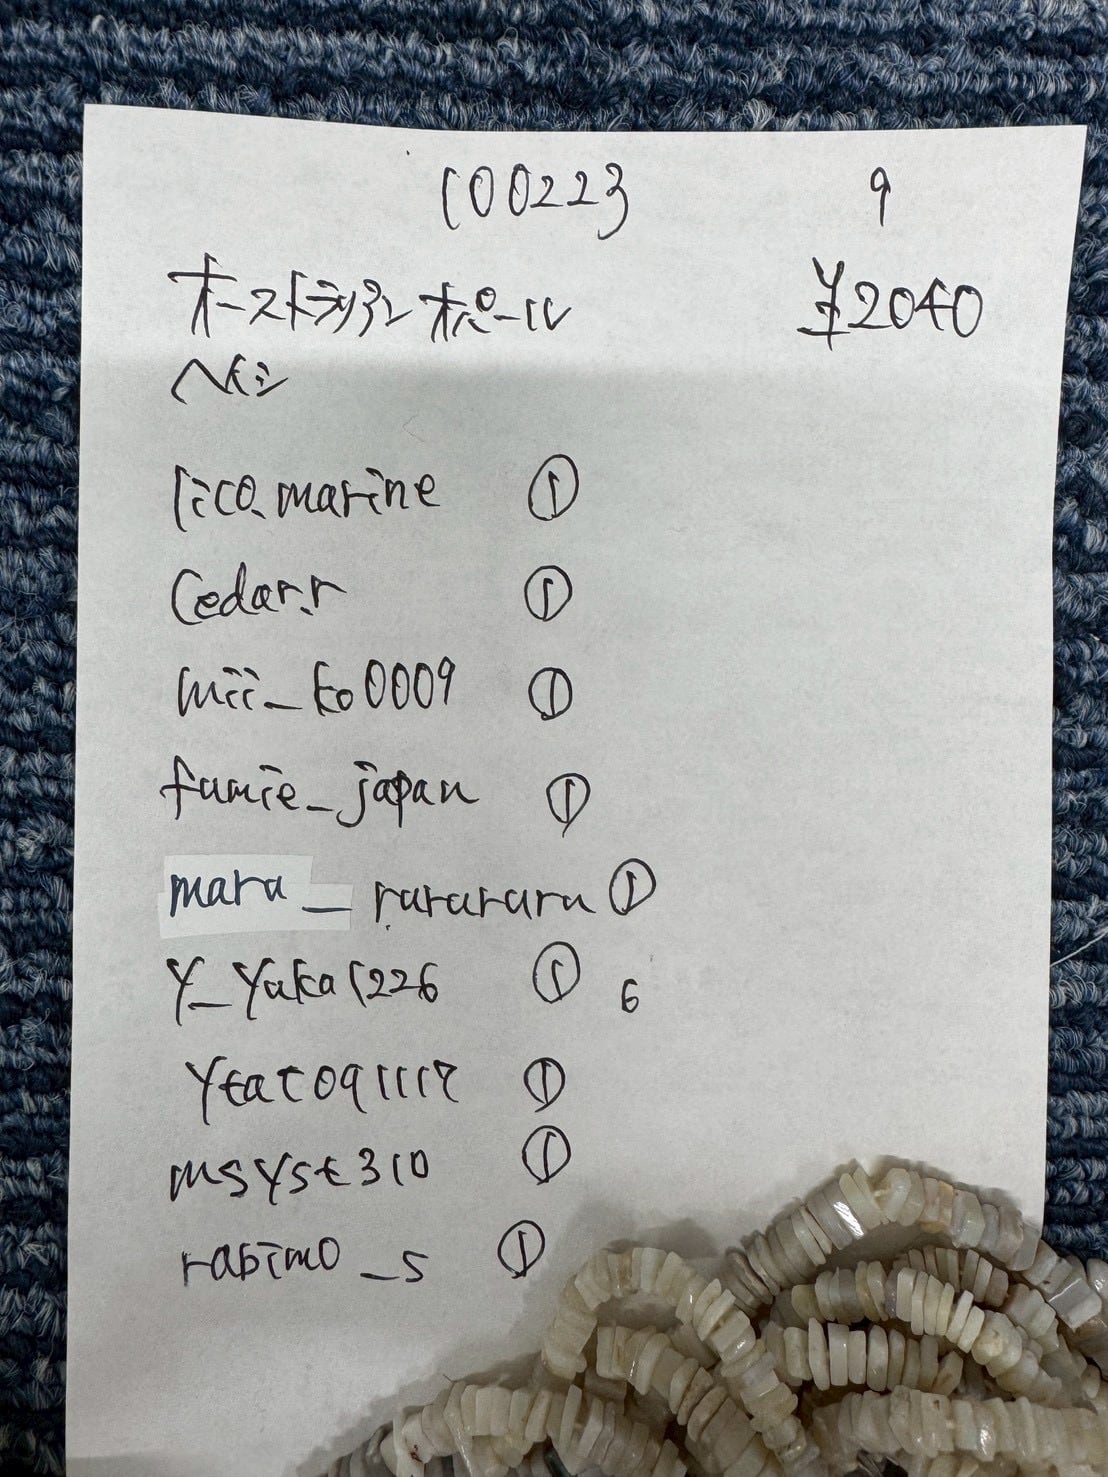 100223 9
オーストラリアン オパール ¥2040
ヘイシ
lico_marine ①
Cedar.r ①
mii_ko0009 ①
fumie_japan ①
mara_rararara ①
Y_Yuka1226 ① 6
Ytat091117 ①
msyst310 ①
rabimo_s ①